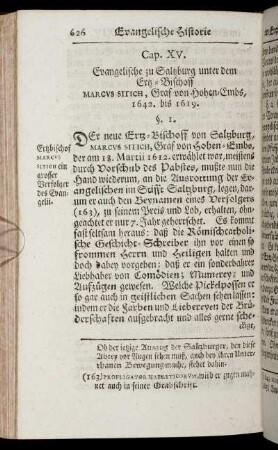 626 Evangelische Historie
Cap. XV.
Evangelische zu Saltzburg unter dem
Ertz-Bischoff
MARCVS SITICH, Graf von Hohen-Embs,
1642. bis 1619.
§. 1.
DEr neue Ertz-Bischoff von Saltzburg,
Ertzbischof
MARCVS
SITICH ein
grosser
Verfolger
des Evan-
gelii.
MARCVS SITICH, Graf von Hohen-Embs,
der am 18. Martii 1612. erwählet war, meistens
durch Vorschub des Pabstes, muste nun die
Hand wiederum, an die Ausrottung der Ev-
angelischen im Stifft Saltzburg, legen, dar-
um er auch den Beynamen eines Verfolgers
(163), zu seinem Preis und Lob, erhalten, ohn-
geachtet er nur 7. Jahr geherrschet. Es kommt
fast seltsam heraus: daß die Römischcatholi-
sche Geschicht-Schreiber ihn vor einen so
frommen Herrn und Heiligen halten und
doch dabey vorgeben: daß er ein sonderbarer
Liebhaber von Comödien, Mummerey und
Aufzügen gewesen. Welche Pickelpossen er
so gar auch in geistlichen Sachen sehen lassen:
indem er die Farben und Liebereyen der Brü-
derschafften aufgebracht und alles gerne sche-
ckigt,
Ob der jetzige Auszug der Saltzburger, den diese
vor Augen sehen muß, auch bey ihren Unter-
thanen Bewegung mache, stehet dahin.
(163) PROFLIGATOR HAERETICORVM wird er genen-
net auch in seiner Grabschrift.